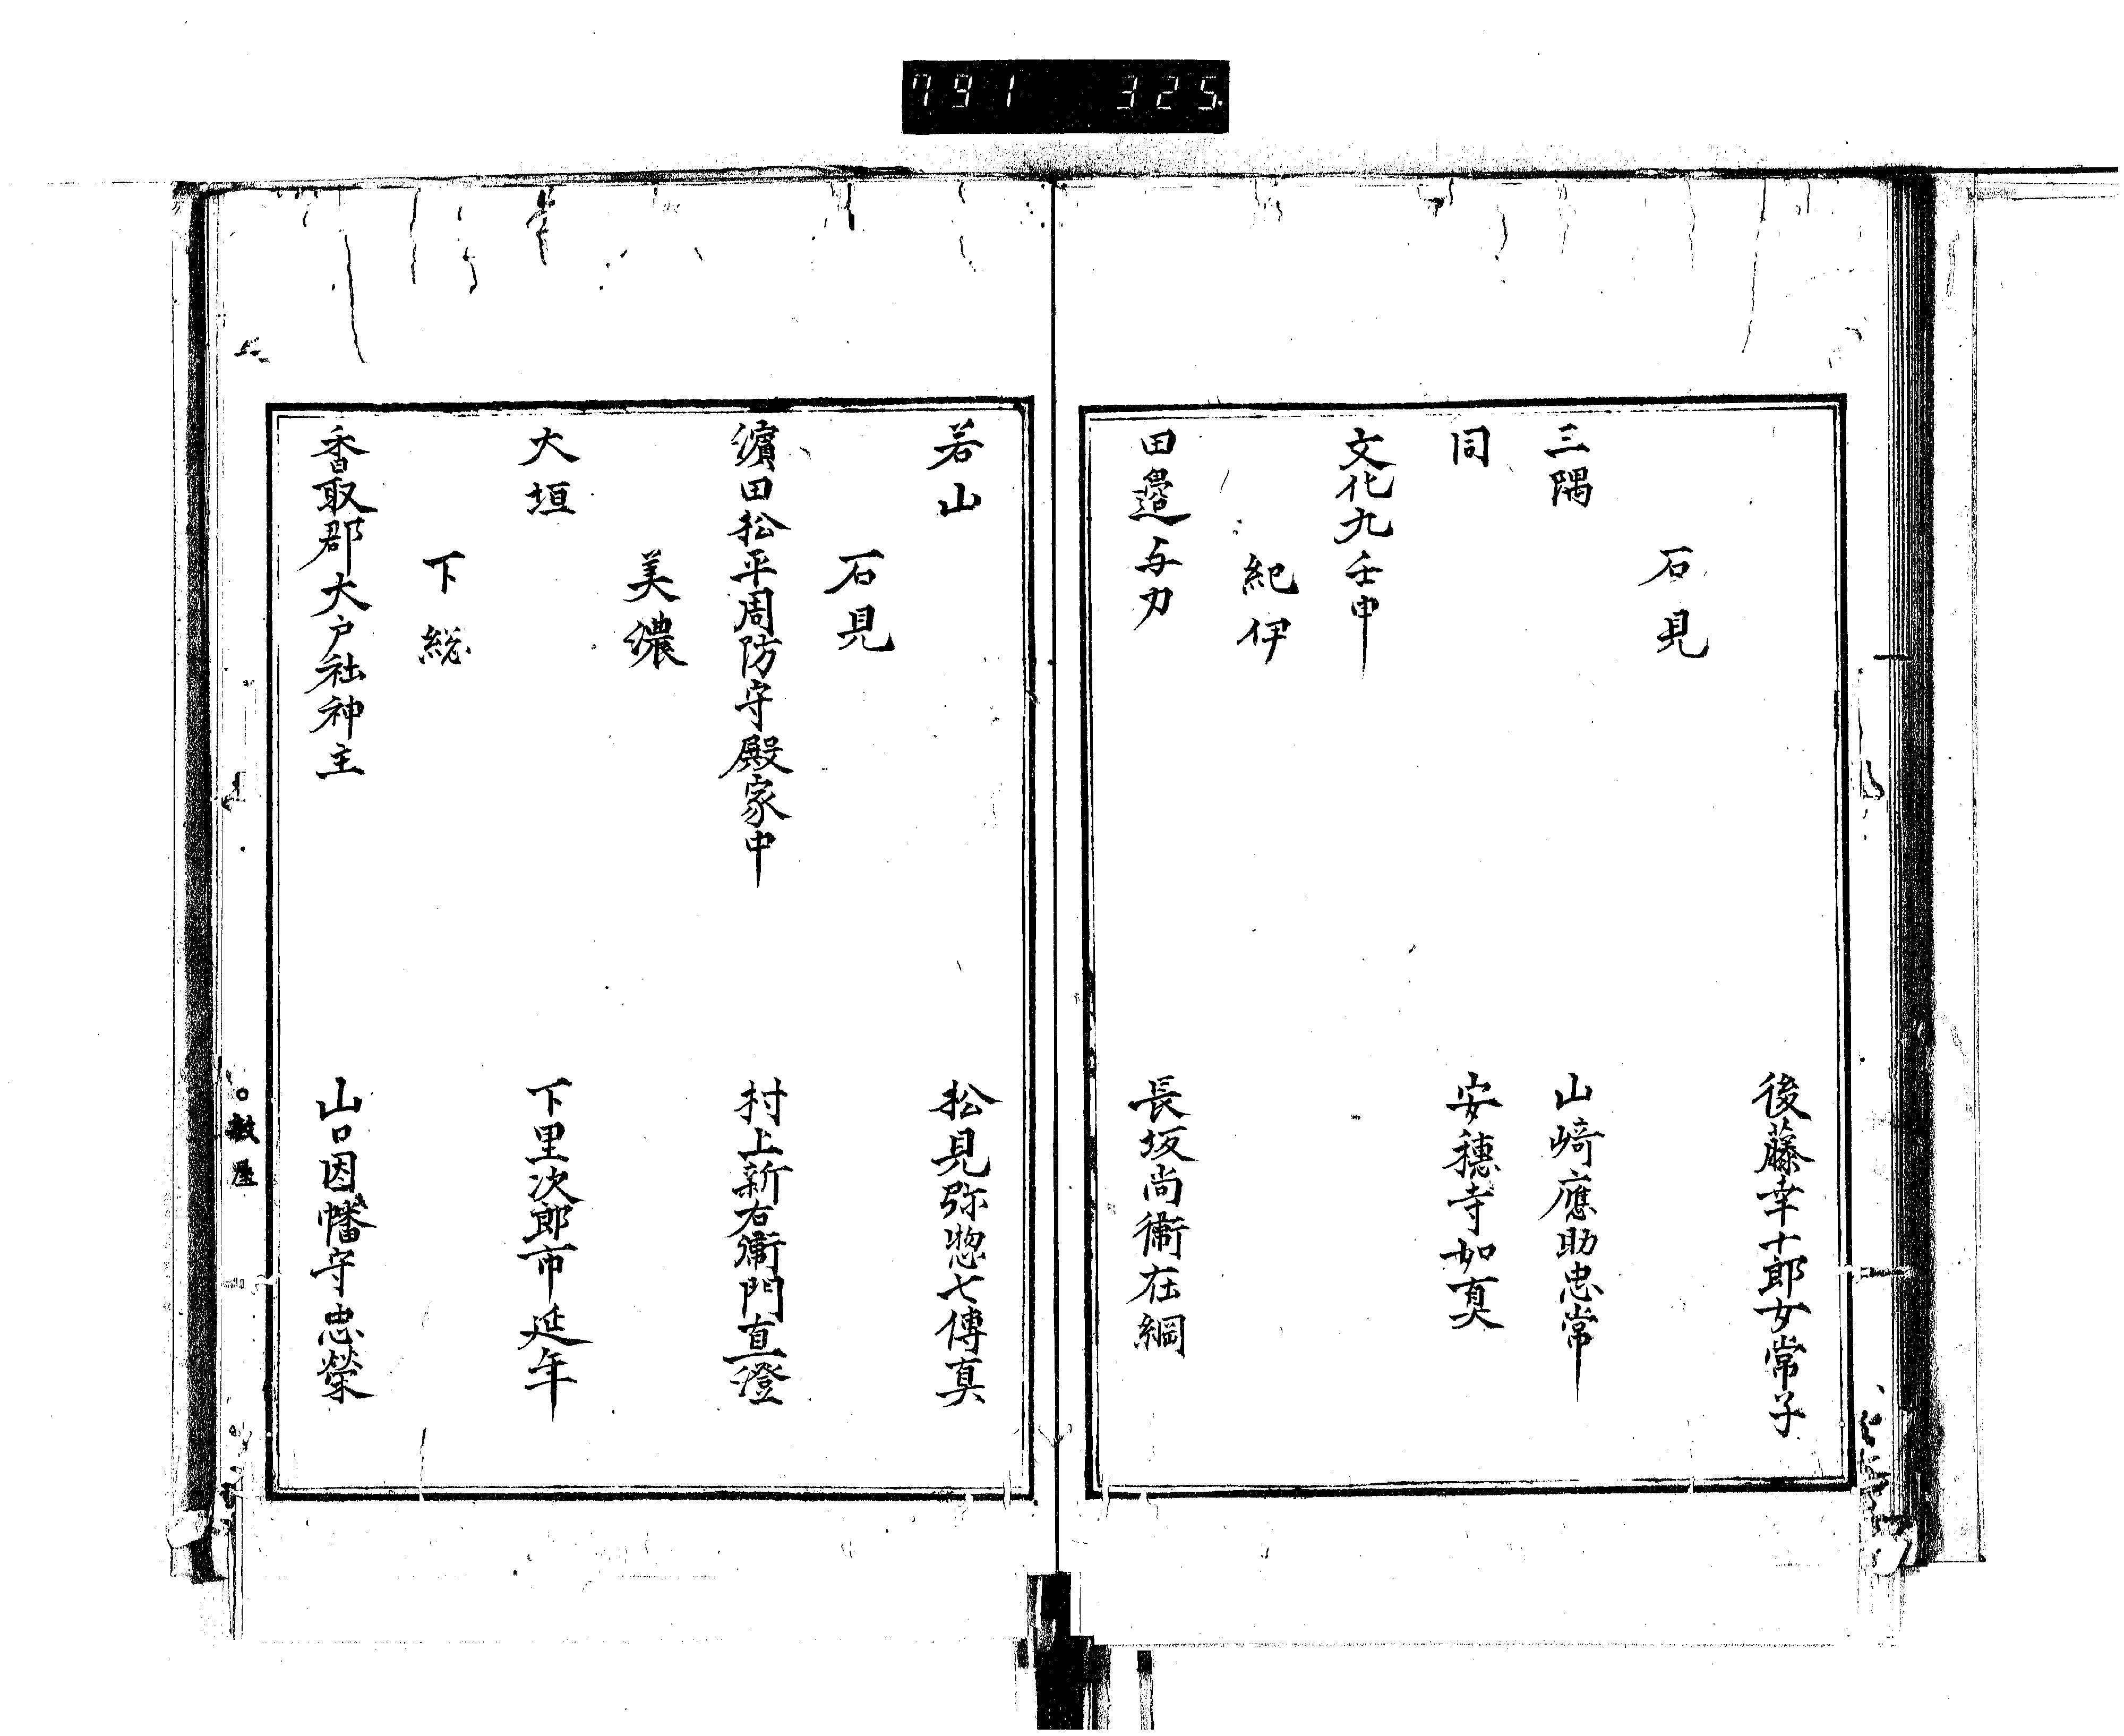 791 325
後藤幸十郎女常子
石見
三隅 山﨑應助忠常
同 安穗寺如真
文化九壬申
紀伊
田邉与力 長坂尚衞在綱
若山 松見弥惣七傳真
石見
濵田松平周防守殿家中 村上新右衞門直澄
美濃
大垣 下里次郎市延年
下総
香取郡大戸社神主 山口因幡守忠榮